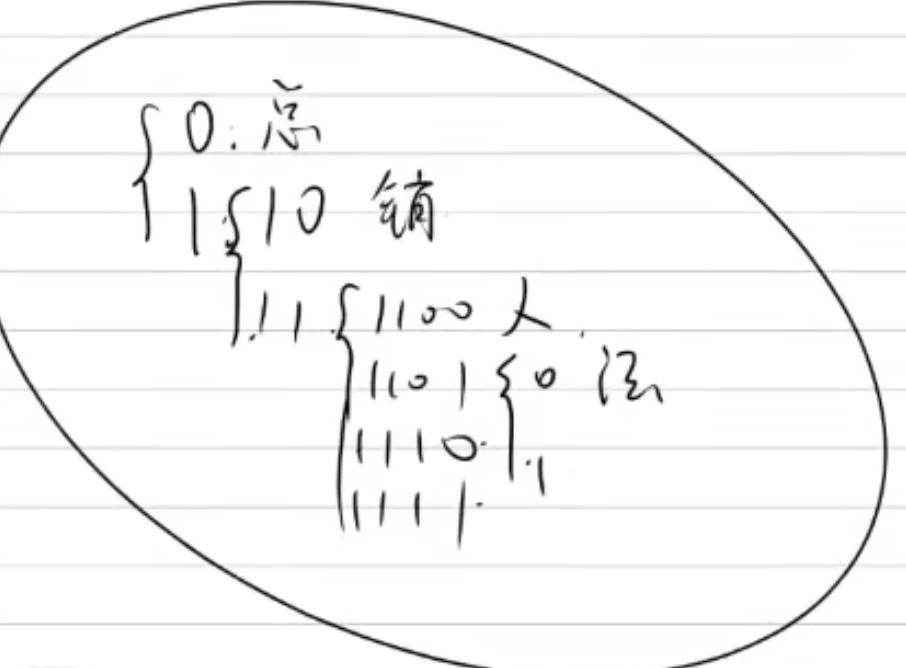 { 0. 总
1 { 10 销
11 { 1100 人
1101 { 0 法
1110 . 1
1111